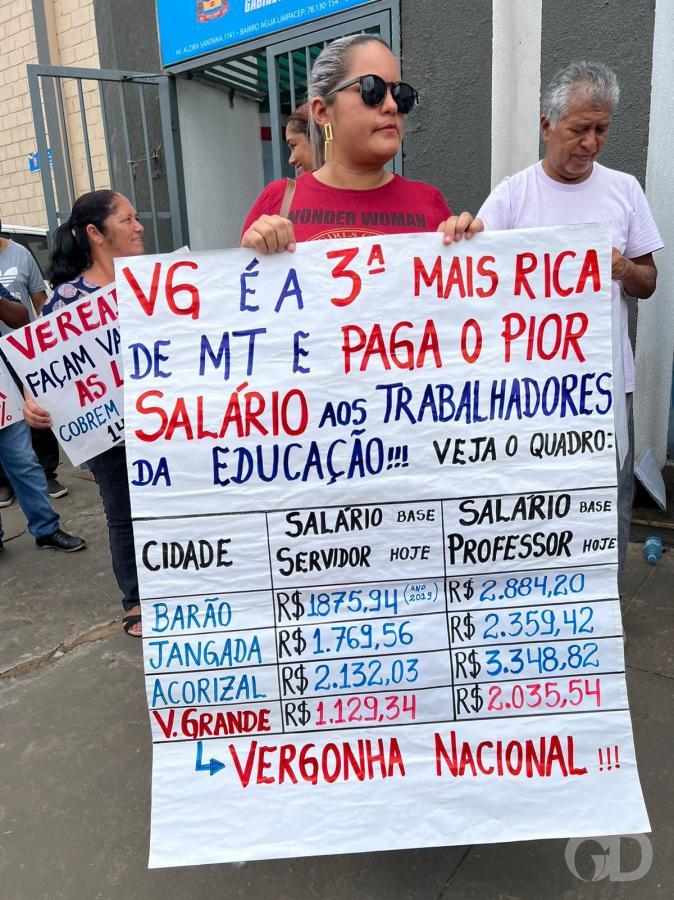 AV. ALZIRA SANTANA, 1741 - BAIRRO AGUA LIMPA CEP: 78.130-154
WONDER WOMAN
VG É A 3ª MAIS RICA
DE MT E PAGA O PIOR
SALÁRIO AOS TRABALHADORES
DA EDUCAÇÃO!!! VEJA O QUADRO:
CIDADE SALÁRIO BASE SERVIDOR HOJE SALÁRIO BASE PROFESSOR HOJE
BARÃO R$ 1875,94 (ANO 2019) R$ 2.884,20
JANGADA R$ 1.769,56 R$ 2.359,42
ACORIZAL R$ 2.132,03 R$ 3.348,82
V. GRANDE R$ 1.129,34 R$ 2.035,54
VERGONHA NACIONAL !!!
FAÇAM
AS
COBREM
GD